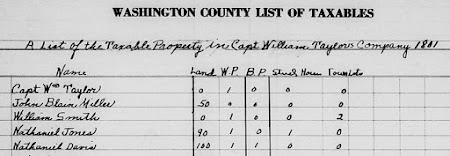 WASHINGTON COUNTY LIST OF TAXABLES
A List of the Taxable Property in Capt William Taylors Company 1801
Name Land W.P. B.P. Stud Horses Town lots
Capt Wm Taylor 0 1 0 0 0
John Blair Miller 50 0 0 0 0
William Smith 0 1 0 0 2
Nathaniel Jones 90 1 0 1 0
Nathaniel Davis 100 1 1 0 0